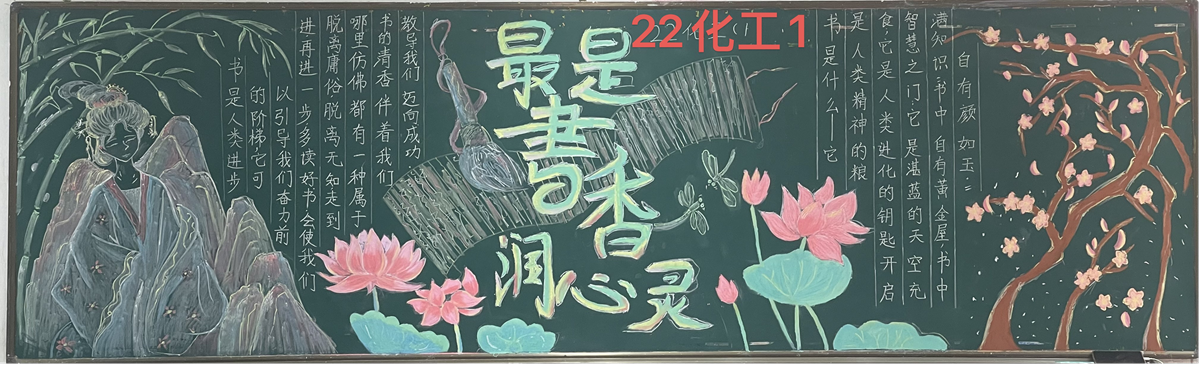 22化工1
最是
書香
润心灵
书是人类进步
的阶梯,它可
以引导我们奋力前
进再进一步多读好书会使我们
脱离庸俗,脱离无知走到
哪里仿佛都有一种属于
书的清香伴着我们
教导我们迈向成功
书是什么——它
是人类精神的粮
食,它是人类进化的钥匙开启
智慧之门,它是湛蓝的天空充
满知识书中自有黄金屋,书中
自有颜如玉